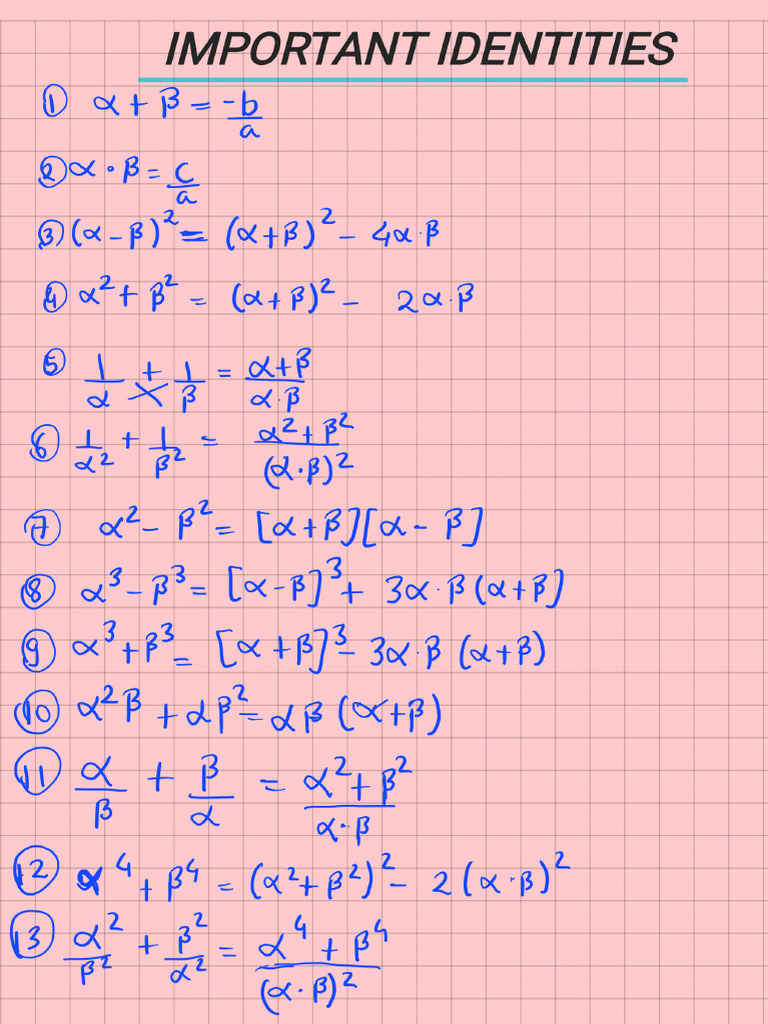 IMPORTANT IDENTITIES
① α + β = -b/a
② α · β = c/a
③ (α - β)² = (α + β)² - 4α·β
④ α² + β² = (α + β)² - 2α·β
⑤ 1/α + 1/β = α+β/α·β
⑥ 1/α² + 1/β² = α²+β²/(α·β)²
⑦ α² - β² = [α + β][α - β]
⑧ α³ - β³ = [α - β]³ + 3α·β(α + β]
⑨ α³ + β³ = [α + β]³ - 3α·β (α + β)
⑩ α²β + αβ² = αβ (α + β)
⑪ α/β + β/α = α² + β²/α·β
⑫ α⁴ + β⁴ = (α² + β²)² - 2(α·β)²
⑬ α²/β² + β²/α² = α⁴ + β⁴/(α·β)²